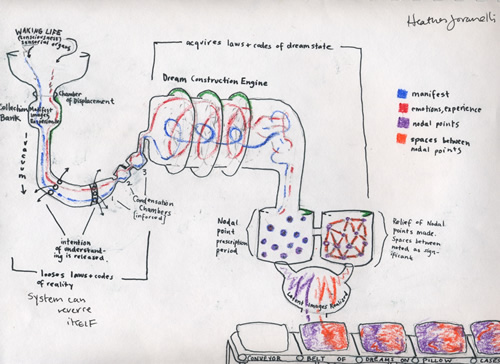 Heather Joranelli
WAKING LIFE
(consciousness)
sensorial organs
acquires laws + codes of dreamstate
Dream Construction Engine
Chamber
of Displacement
Collection
Bank
Manifest
Images
Experiences
Vacuum
manifest
emotions, experience
nodal points
spaces between
nodal points
1
2
3
Condensation
Chambers
[inforced]
intention
of understand-
ing is released.
looses laws + codes
of reality
System can
reverse
itself
Nodal
point
prescription
period
Relief of Nodal
points made.
Spaces between
noted as sign-
ificant
Latent Images Realized
CONVEYOR BELT OF DREAMS ON PILLOW CASE